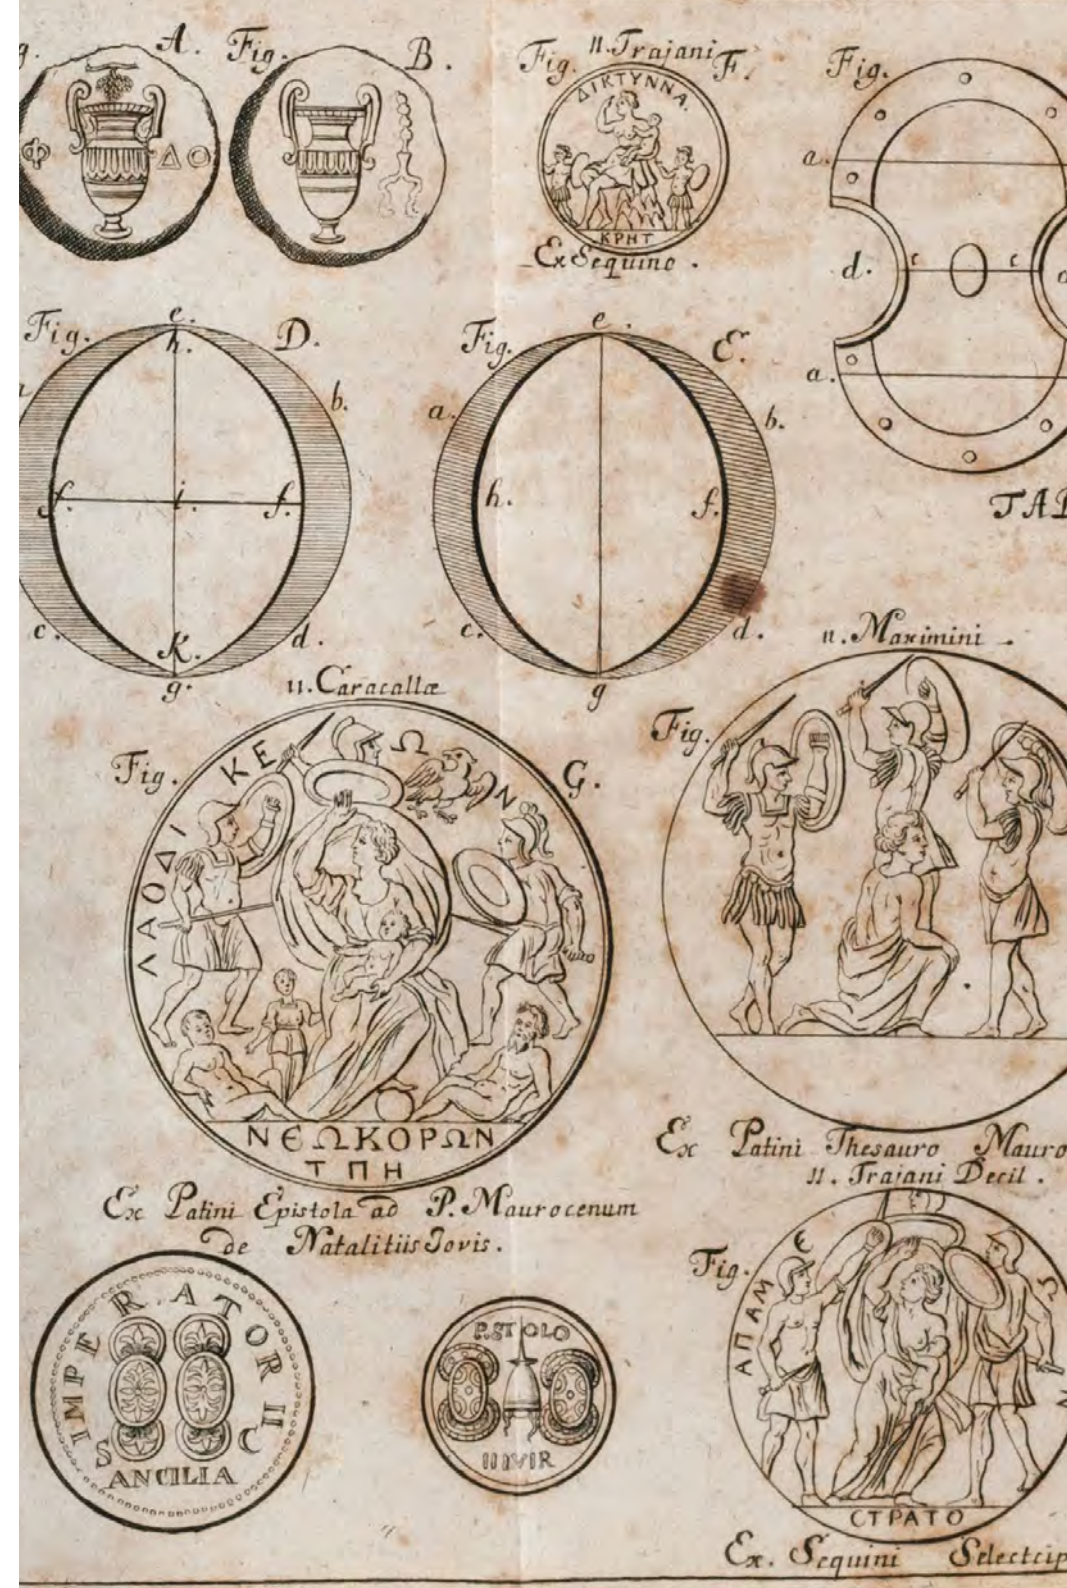 g. A.
Fig. B.
Φ ΔΟ
Fig. II. Trajani F.
ΔΙΚΤΥΝΝΑ.
ΚΡΗΤ
Ex Sequino.
Fig.
a.
d. c c
a.
Fig. e. D.
h.
b.
f. i. f.
c. d.
K.
g.
Fig. e. E.
a. b.
h. f.
c. d.
g
II. Caracallæ
Fig. G.
ΛΑΟΔΙ ΚΕ Ω Ν
ΝΕΩΚΟΡΩΝ
Τ Π Η
Ex Patini Epistola ad P. Maurocenum
de Natalitiis Jovis.
II. Maximini.
Fig.
Ex Patini Thesauro Mauro
II. Trajani Decil.
Fig.
ΑΠΑΜ Є
CΤΡΑΤΟ
Ex. Sequini
IMPER.ATOR II
S C
ANCILIA
P.STOLO
IIIVIR